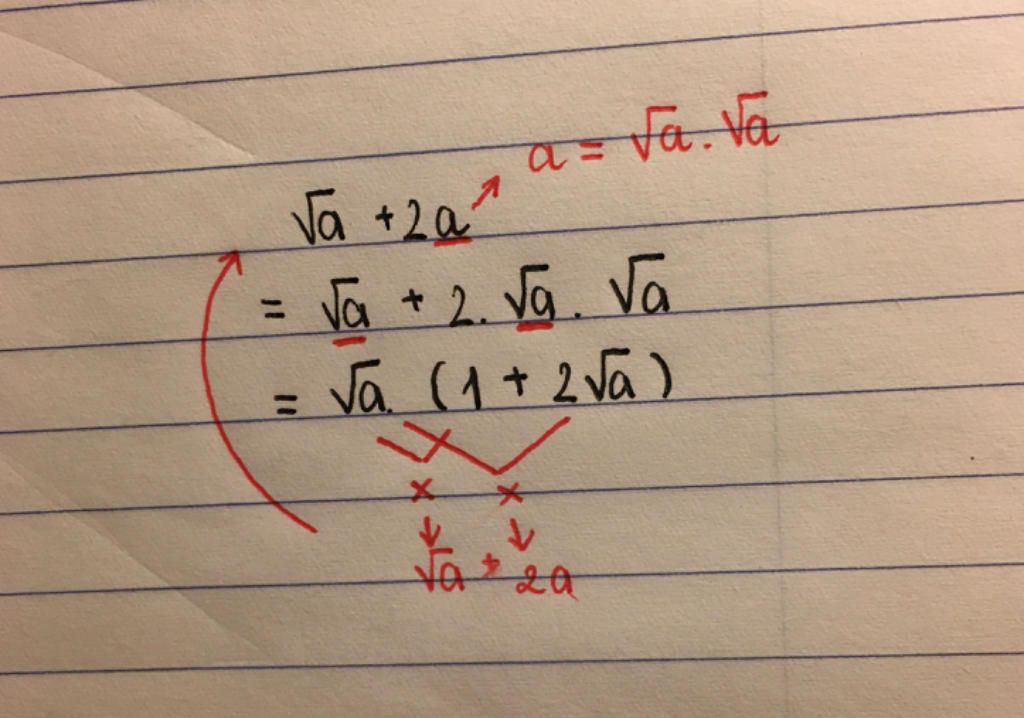 a = √a . √a
√a + 2a
= √a + 2. √a . √a
= √a. (1 + 2√a)
× ×
√a + 2a